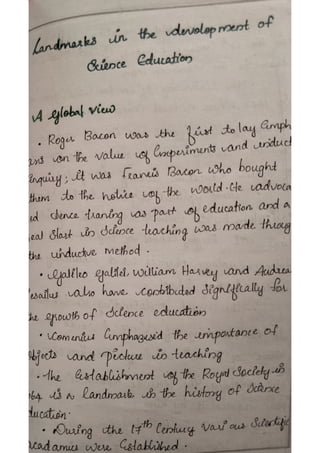 Landmarks in the development of
Science Education
A Global View
• Roger Bacon was the first to lay Emph
asis on the value of Experiments and induct
Inquiry; it was Francis Bacon who bought
them to the notice of the would. He advoca
ed science traning as part of education and a
real Start in Science teaching was made throug
the inductive method.
• Galileo Galilei, William Harvey and Andrea
vesailus also have contributed Significally for
the growth of Science education
• Comenius Emphazised the importance of
objects and picture in teaching
• The Establishment of the Royal Society in
is a landmark in the history of Science
Education.
• During the 17th Century Various Scientific
academies were Established.